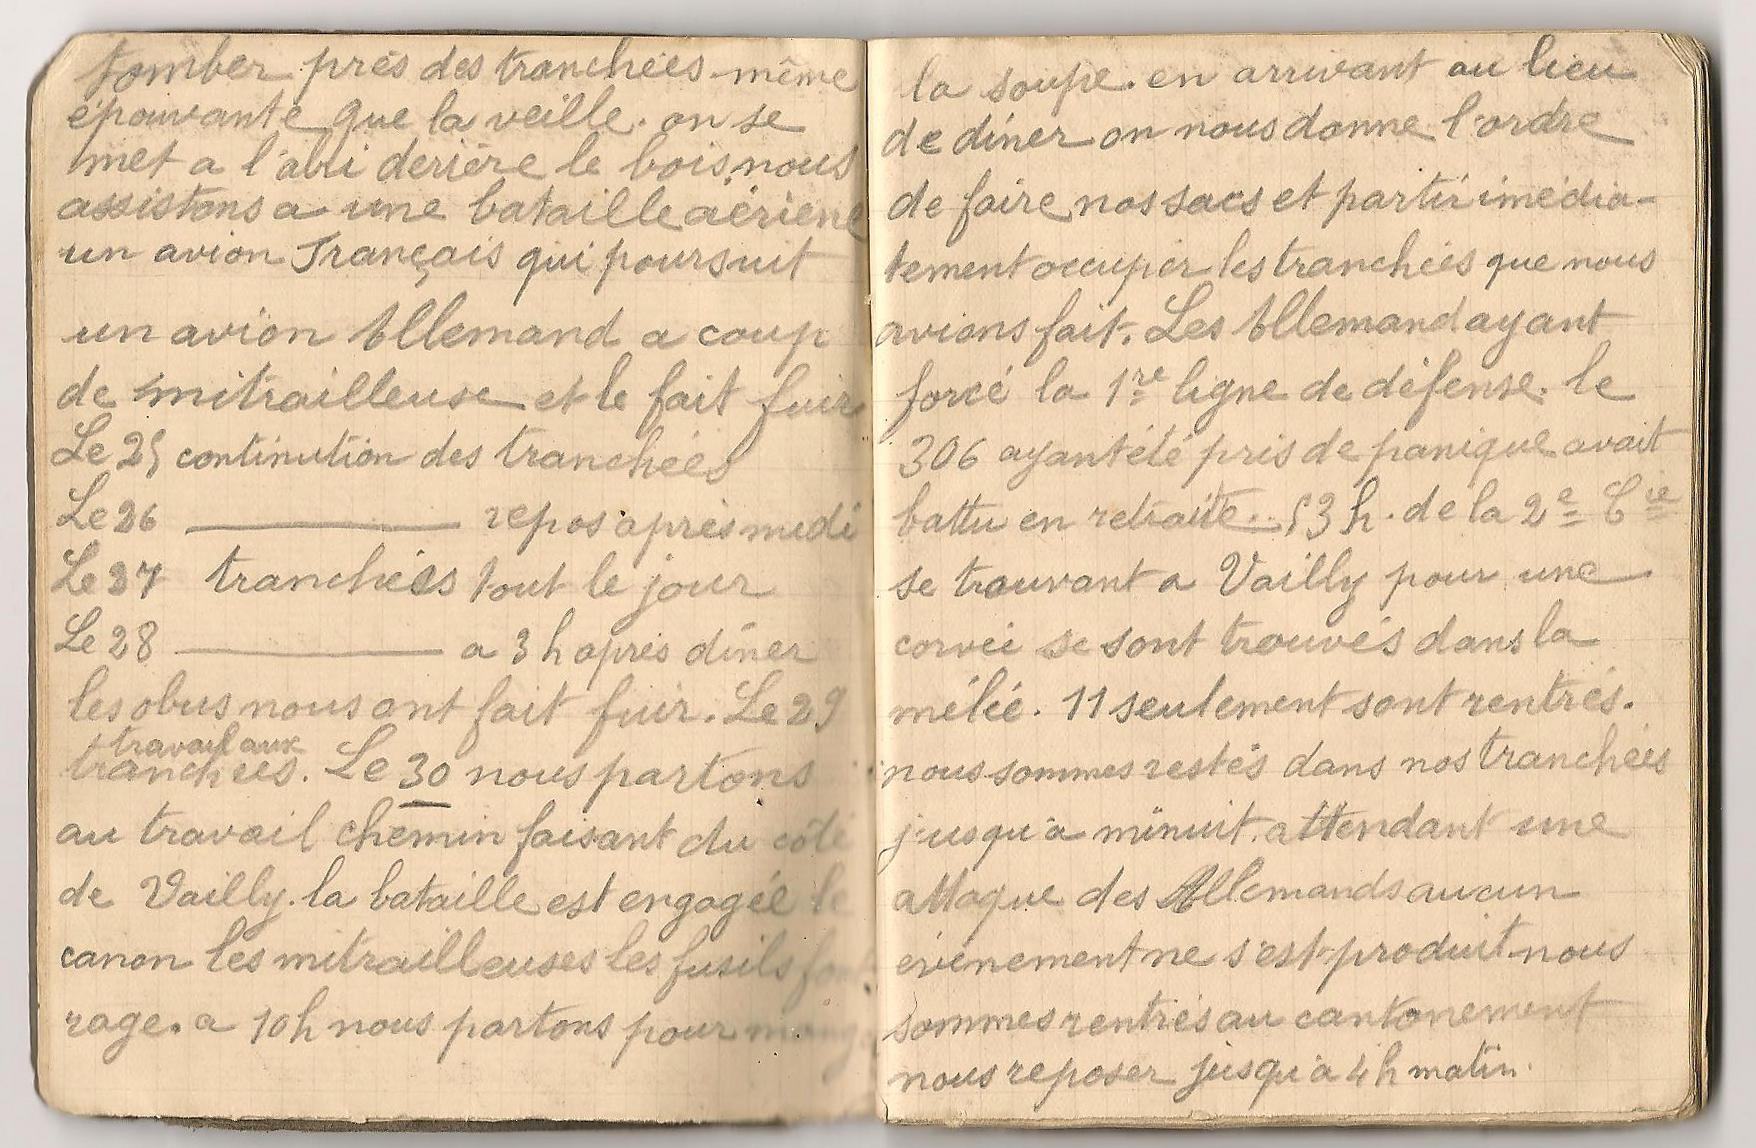 tomber près des tranchées même
épouvante que la veille. on se
met a l'abri derière le bois, nous
assistons a une bataille aériene
un avion Français qui poursuit
un avion Allemand a coup
de mitrailleuse et le fait fuir
Le 25 continution des tranchées
Le 26 ———— repos après midi
Le 27 tranchées tout le jour
Le 28 ———— a 3 h après dîner
les obus nous ont fait fuir. Le 29
travail aux
tranchées. Le 30 nous partons
au travail chemin faisant du côté
de Vailly. la bataille est engagée le
canon les mitrailleuses les fusils font
rage. a 10h nous partons pour
la soupe. en arrivant au lieu
de dîner on nous donne l'ordre
de faire nos sacs et partir imédia-
tement occuper les tranchées que nous
avions fait. Les Allemand ayant
forcé la 1re ligne de défense. le
306 ayant été pris de panique avait
battu en retraite. 53 h. de la 2e Cie
se trouvant a Vailly pour une
corvée se sont trouvés dans la
mélée. 11 seulement sont rentrés.
nous sommes restés dans nos tranchées
jusqu'a minuit. attendant une
attaque des Allemands aucun
évènement ne s'est produit nous
sommes rentrés au cantonement
nous reposer jusqu'a 4 h matin.